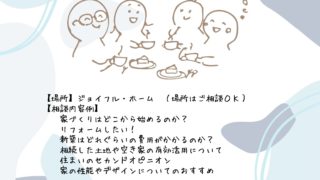 【場所】ジョイフル・ホーム （場所はご相談OK）
【相談内容例】
家づくりはどこから始めるのか？
リフォームしたい！
新築はどれぐらいの費用がかかるのか？
相続した土地や空き家の有効活用について
住まいのセカンドオピニオン
家の性能やデザインについてのおすすめ